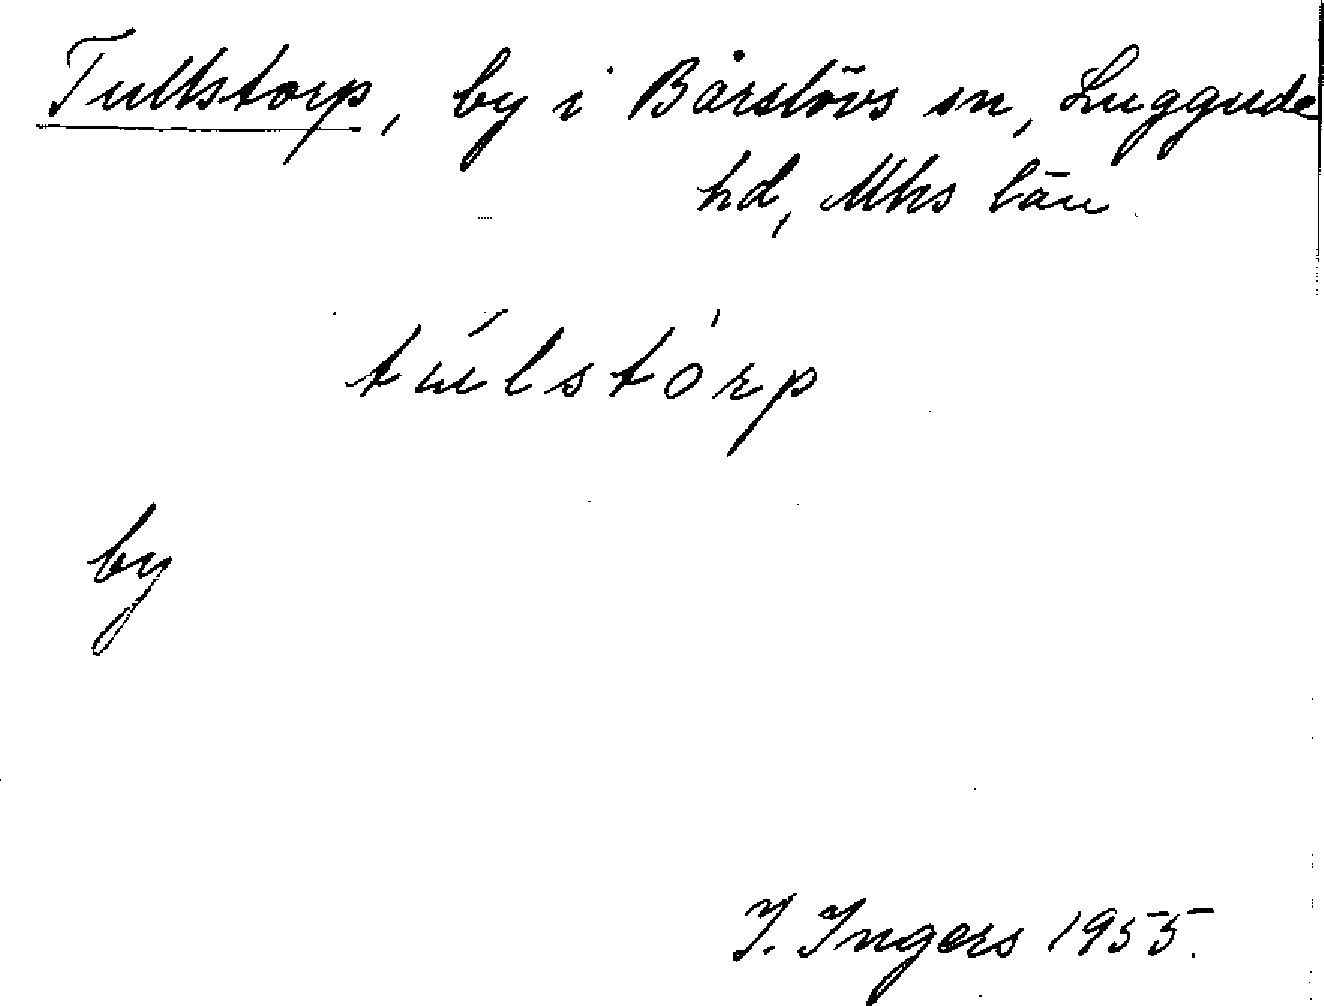 Tullstorp, by i Bårslövs sn, Luggude
hd, Mhs län
túlstórp
by
I. Ingers 1955.